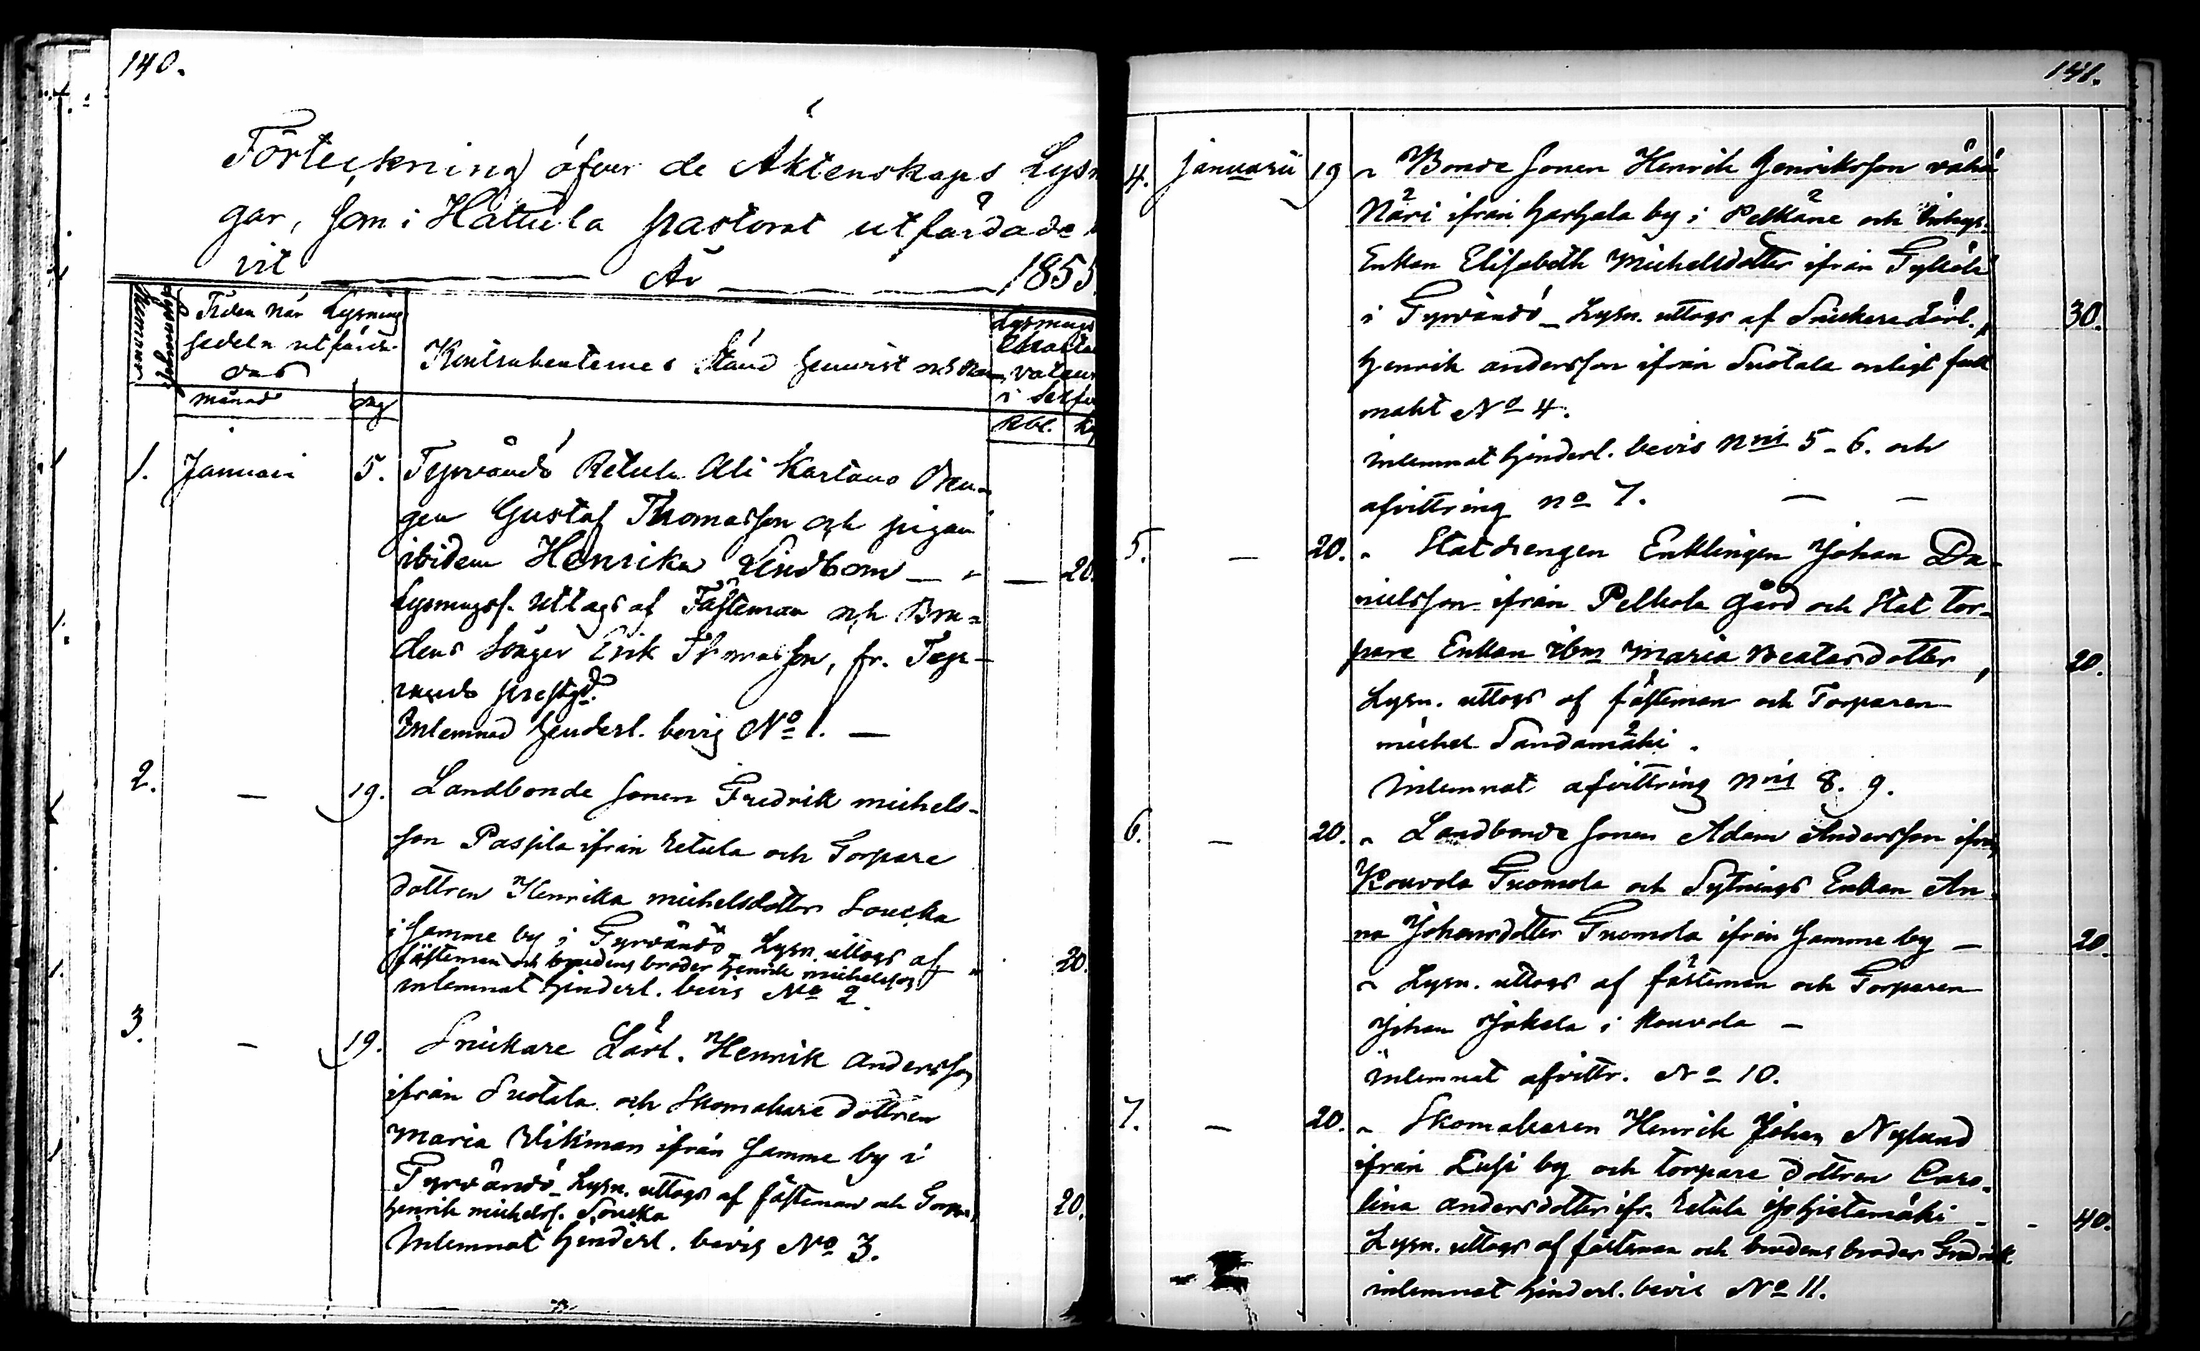 140.
Förteckning öfver de Äktenskaps Lysn
gar, som i Hattula pastorat utfärdade
vit
År 1855.
Lysnings Nummer
Tiden när Lysning
sedeln utfär
das
Kontrahenternes Stånd hemvist och
Lysnings
i
månad
dag
Rbl. K
1. Januari 5. Tyrväntö Retula Ali Kartano Dren-
gen Gustaf Thomasson och pigan
ibidem Henrika Lindbom — " — 20.
Lysningss. uttogs af Fästeman och Bru-
dens Erik Thomasson, fr. Tyr-
Inlemnad henderl. bevis No 1. —
2. — 19. Landbonde sonen Fredrik Michels-
son Paspila ifrån Retula och Torpare
dottren Henrika Michelsdotter Loucka
i samme by i Tyrväntö. Lysn. uttogs af " 20.
fästeman och brudens broder Henrik Michelsson
inlemnat hinderl. bevis No 2.
3. — 19. Snickare Lärl. Henrik Andersson
ifrån Suotala och Skomakare dottren
Maria Wikman ifrån samme by i
Tyrväntö. Lysn. uttogs af fästeman och Torpar, 20.
Henrik Michelss. Loucka
Inlemnat hinderl. bevis No 3.
141.
4. Januarii 19 " Bonde sonen Henrik Henriksson Vähä
Näri ifrån Harhala by i Pelkäne och Inhys.
Enkan Elisabeth Michelsdotter ifrån
i Tyrväntö — Lysn. uttogs af Snickare Lärl. , 30.
Henrik Andersson ifrån Suotala enligt full
makt No 4.
inlemnat hinderl. bevis Nris 5 - 6. och
afvittring No 7. — —
5. — 20. " Statdrengen Enklingen Johan Da-
nielsson ifrån Pelkola gård och Stat tor-
pare Enkan ibm Maria Beatasdotter , 20.
Lysn. uttogs af fästeman och Torparen
Michel Sandamäki.
Inlemnat afvittring Nris 8. 9.
6. — 20. " Landbonde sonen Adam Andersson ifrån
Kouvola Tuomola och Sytnings Enkan An-
na Johansdotter Tuomola ifrån samme by — 20.
" Lysn. uttogs af fästeman och Torparen
Johan Jokela i Kouvola —
Inlemnat afvittr. No 10.
7. — 20. " Skomakaren Henrik Johan Nylund
ifrån Lusi by och torpare dottren Caro-
lina Andersdotter ifr. Retula - - 40.
Lysn. uttogs af fästeman och brudens broder Fredrik
inlemnat hinderl. bevis No 11.